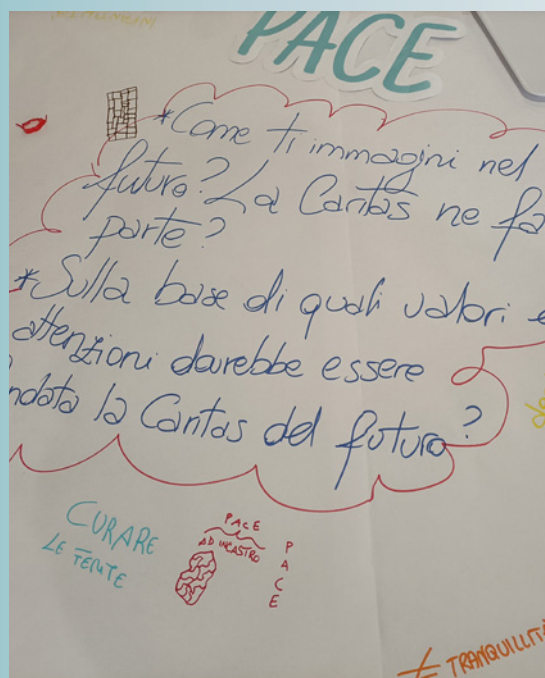 PACE
*Come ti immagini nel
futuro? La Caritas ne fa
parte?
*Sulla base di quali valori e
attenzioni dovrebbe essere
ndata la Caritas del futuro?
CURARE
LE FERITE
PACE
AD INCASTRO
PACE
≠ TRANQUILLITÀ